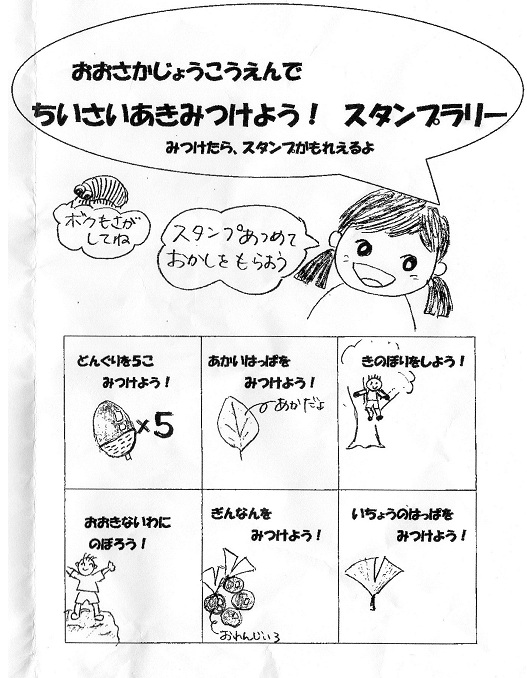 おおさかじょうこうえんで
ちいさいあきみつけよう！　スタンプラリー
みつけたら、スタンプがもれえるよ
ボクもさが
してね
スタンプあつめて
おかしをもらおう
どんぐりを5こ
みつけよう！
×5
あかいはっぱを
みつけよう！
あかだよ
きのぼりをしよう！
おおきないわに
のぼろう！
ぎんなんを
みつけよう！
おれんじいろ
いちょうのはっぱを
みつけよう！